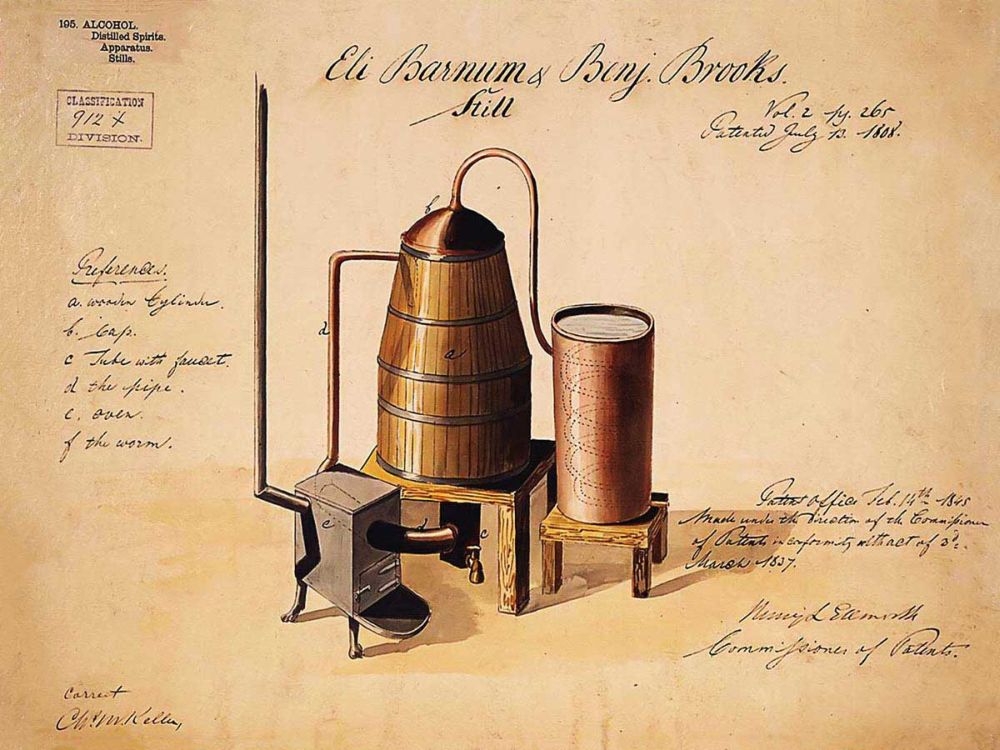 195. ALCOHOL.
Distilled Spirits.
Apparatus.
Stills.
CLASSIFICATION
912 X
DIVISION.
Eli Barnum & Benj. Brooks.
Still
Vol. 2 pg. 265
Patented July 13. 1808.
References.
a. wooden Cylinder.
b. Cap.
c Tube with faucet.
d the pipe.
e. oven.
f the worm.
b
d
a
e
d
c
Patent Office Feb. 14th 1845
Made under the direction of the Commissioner
of Patents in conformity with act of 3d.
March 1837.
Henry L Ellsworth
Commissioner of Patents.
Correct
Chs. M. Keller,